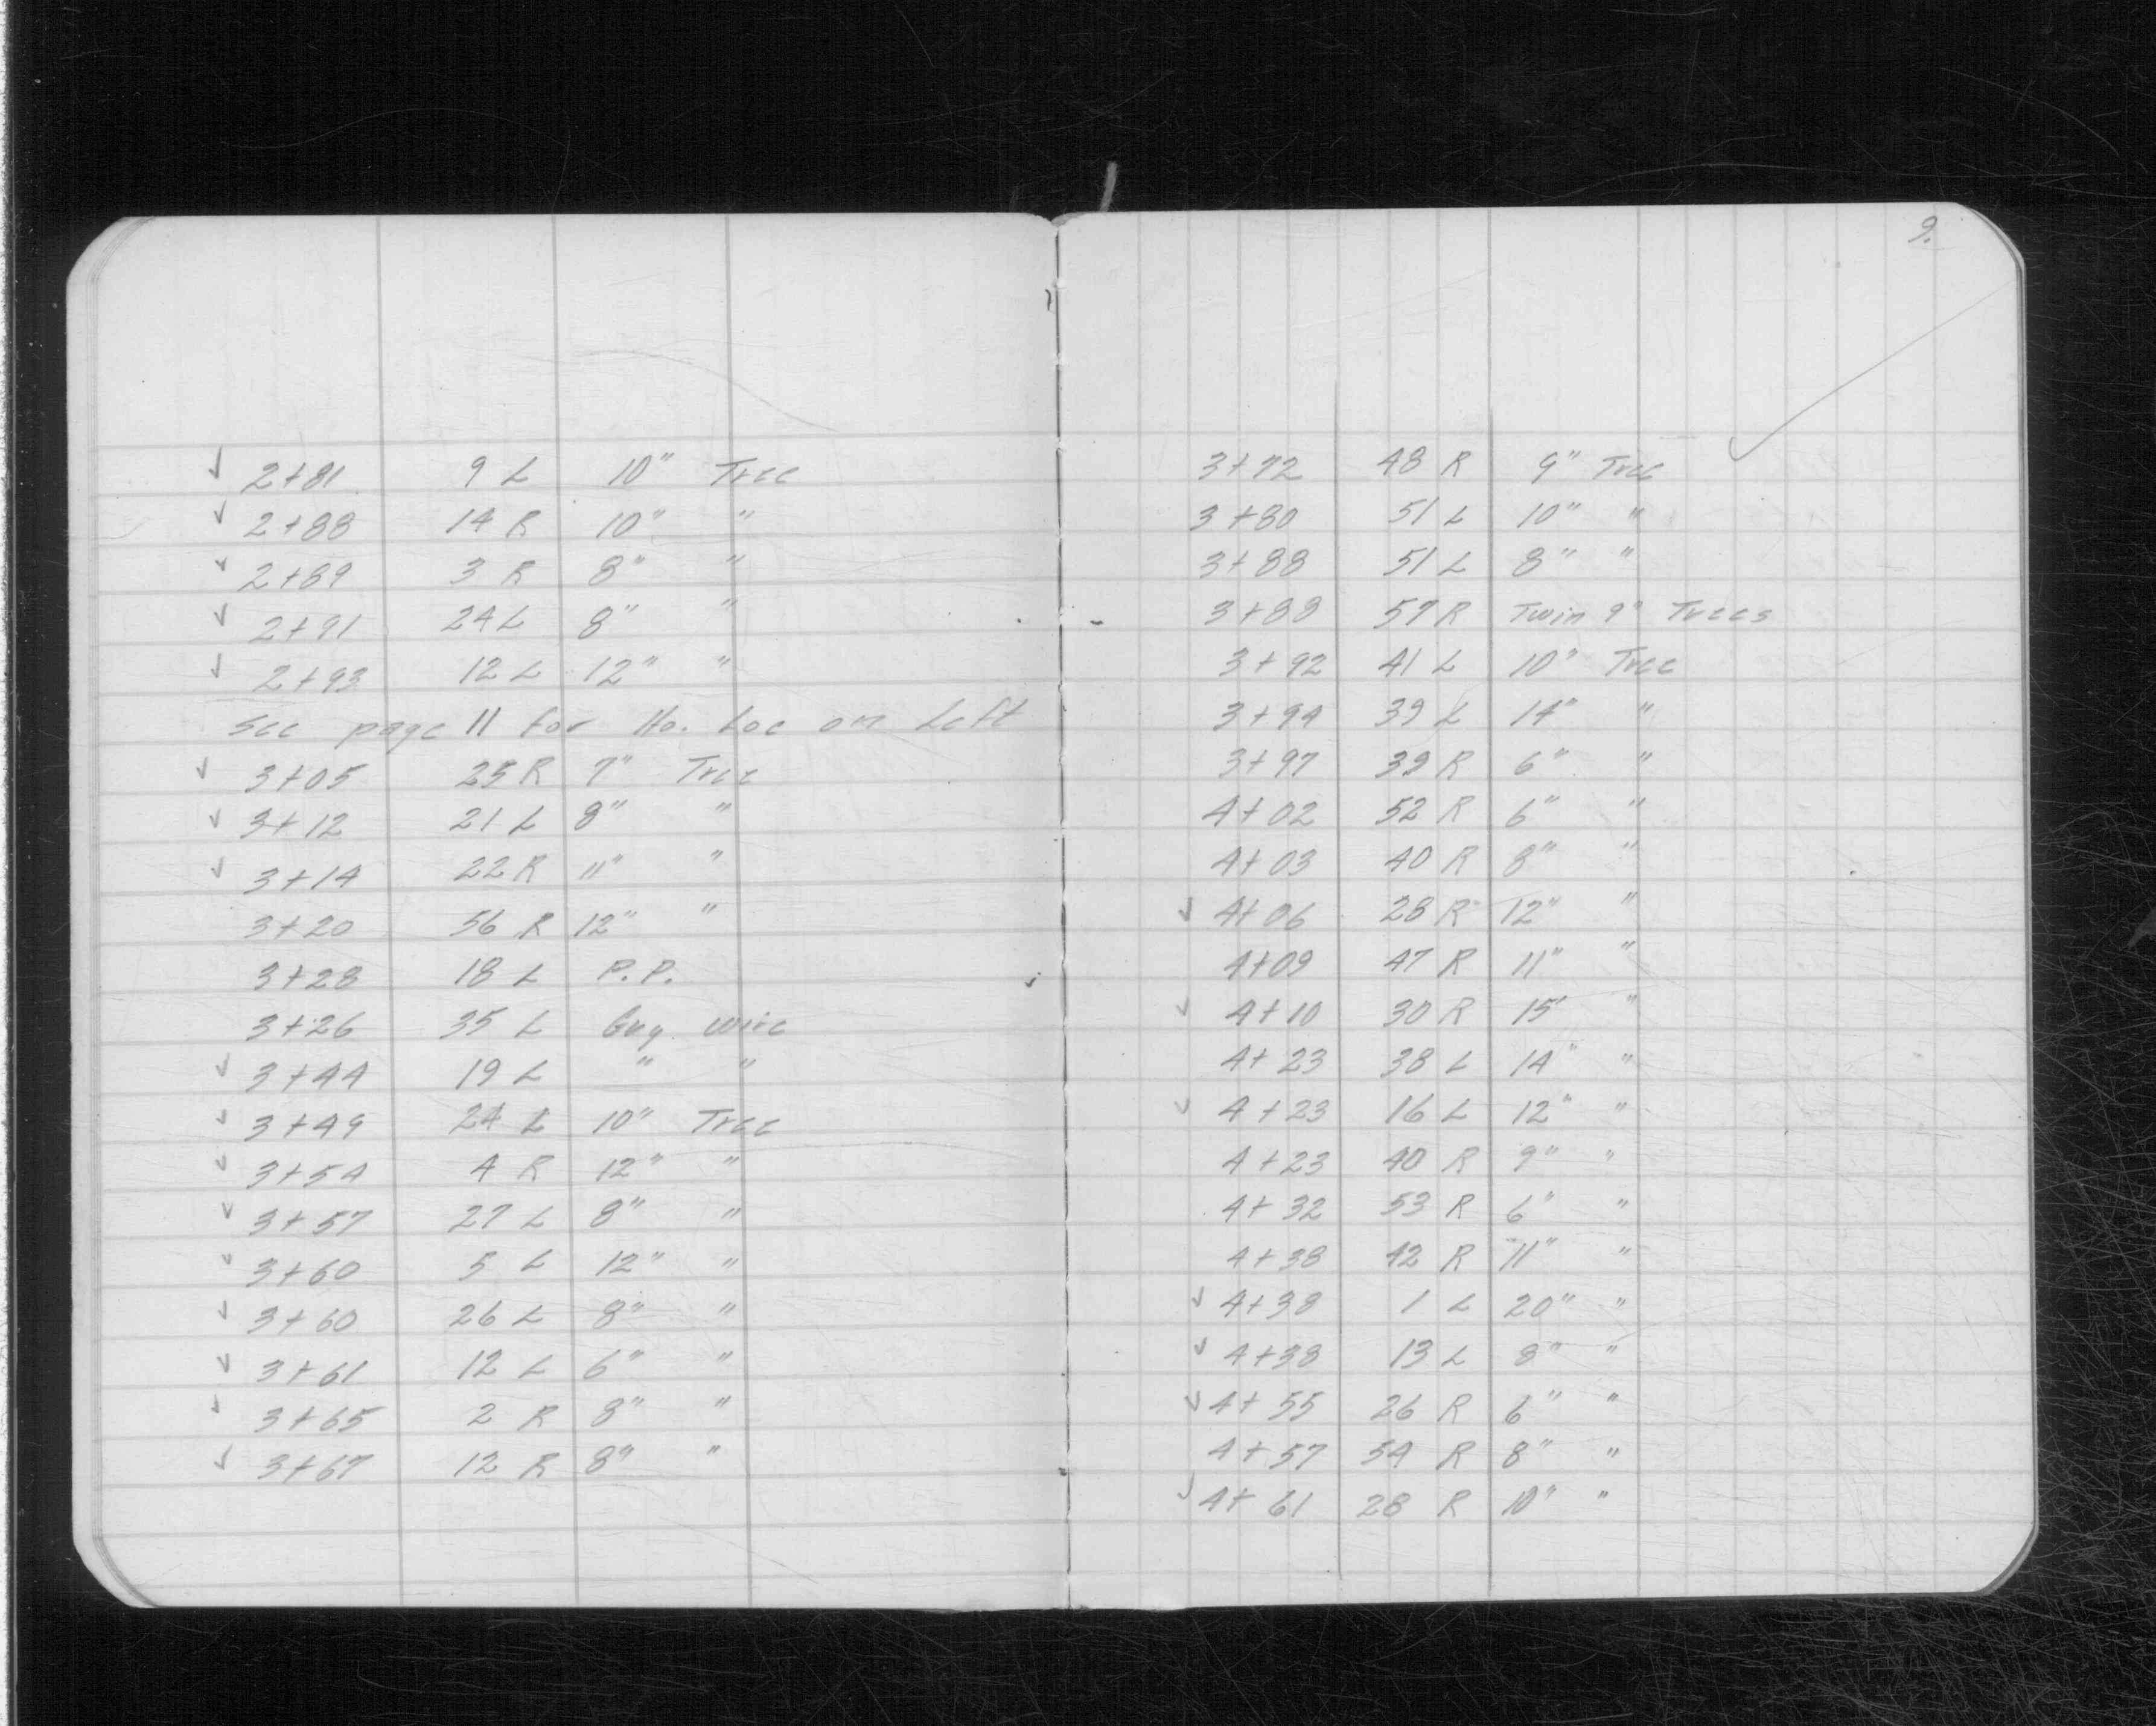 ✓ 2+81 9 L 10" Tree
✓ 2+88 14 R 10" "
✓ 2+89 3 R 8" "
✓ 2+91 24 L 8" "
✓ 2+93 12 L 12" "
See page 11 for Ho. Loc on Left
✓ 3+05 25 R 7" Tree
✓ 3+12 21 L 8" "
✓ 3+14 22 R 11" "
3+20 56 R 12" "
3+28 18 L P.P.
3+26 35 L Guy wire
✓ 3+44 19 L " "
✓ 3+49 24 L 10" Tree
✓ 3+54 4 R 12" "
✓ 3+57 27 L 8" "
✓ 3+60 5 L 12" "
✓ 3+60 26 L 8" "
✓ 3+61 12 L 6" "
✓ 3+65 2 R 8" "
✓ 3+67 12 R 8" "
9.
3+72 48 R 9" Tree
3+80 51 L 10" "
3+88 51 L 8" "
3+88 57 R Twin 9" Trees
3+92 41 L 10" Tree
3+94 39 L 14" "
3+97 39 R 6" "
4+02 52 R 6" "
4+03 40 R 8" "
✓ 4+06 28 R 12" "
4+09 47 R 11" "
✓ 4+10 30 R 15" "
4+23 38 L 14" "
✓ 4+23 16 L 12" "
4+23 40 R 9" "
4+32 53 R 6" "
4+38 42 R 11" "
✓ 4+38 1 L 20" "
✓ 4+38 13 L 8" "
✓ 4+55 26 R 6" "
4+57 54 R 8" "
✓ 4+61 28 R 10" "